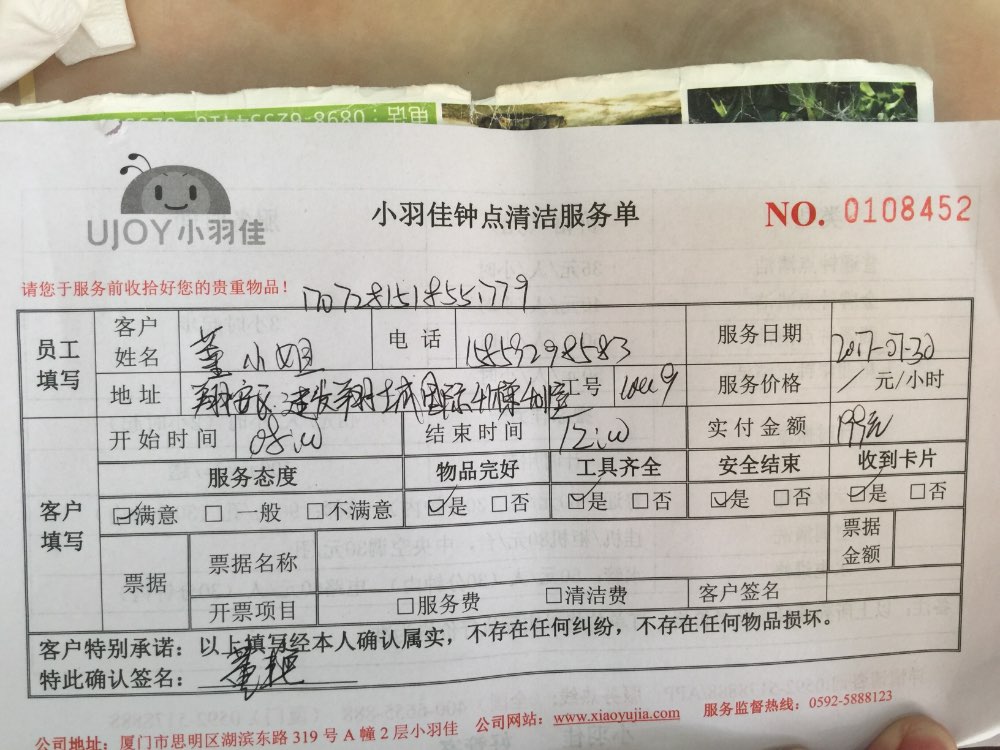 UJOY小羽佳
小羽佳钟点清洁服务单
NO. 0108452
请您于服务前收拾好您的贵重物品！
员工填写
客户姓名 董小姐 电话 15859298583 服务日期 2017-07-30
地址 翔安区建发翔城国际 工号 服务价格 / 元/小时
开始时间 08:00 结束时间 12:00 实付金额 199元
客户填写
服务态度 物品完好 工具齐全 安全结束 收到卡片
☑满意 □ 一般 □不满意 ☑是 □否 ☑是 □否 ☑是 □否 ☑是 □否
票据 票据名称 票据金额
开票项目 □服务费 □清洁费 客户签名
客户特别承诺：以上填写经本人确认属实，不存在任何纠纷，不存在任何物品损坏。
特此确认签名：
公司地址：厦门市思明区湖滨东路 319 号 A 幢 2 层小羽佳 公司网站：www.xiaoyujia.com 服务监督热线：0592-5888123